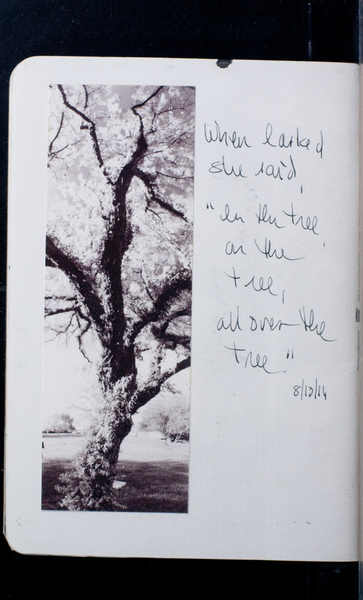 When I asked
she said,
"in the tree,
on the
tree,
all over the
tree."
8/13/14